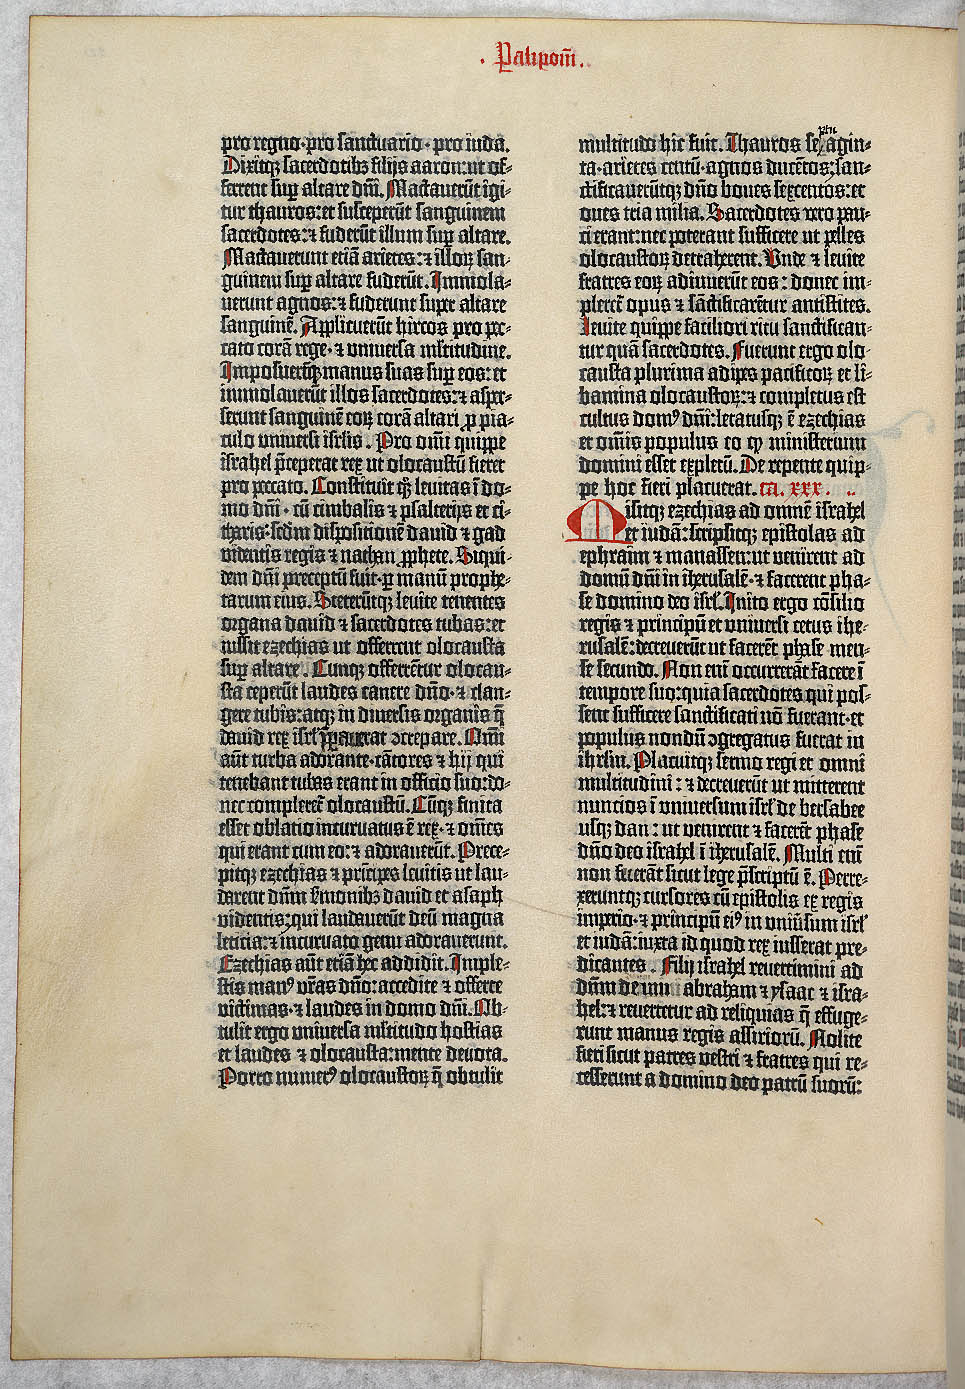 · Palipom̄ .
pro regno·pro sanctuario·pro iuda.
Dixitqꝫ sacerdotibꝫ filijs aaron:ut of-
ferrent sup̱ altare dn̄i. Mactauerūt igi-
tur thauros:et susceperūt sanguinem
sacerdotes:⁊ fuderūt illum sup̱ altare.
Mactauerunt etiā arietes:⁊ illoꝝ san-
guinem sup̱ altare fuderūt. Immola-
uerunt agnos:⁊ fuderunt super altare
sanguinē. Applicuerūt hircos pro pec-
cato corā rege·⁊ vniuersa mltitudine.
Imposuerūtqꝫ manus suas sup̱ eos:et
immolauerūt illos sacerdotes:⁊ asper-
serunt sanguinē eoꝝ corā altari ꝓ pia-
culo vniuersi isrl̄is. Pro om̄i quippe
israhel p̄ceperat rex ut olocaustū fieret
pro peccato. Constituit qꝫ leuitas ī do-
mo dn̄i·cū cimbalis ⁊ psalterijs et ci-
tharis:scd̄m dispositionē dauid ⁊ gad
videntis regis ⁊ nathan ꝓphete. Siqui-
dem dn̄i preceptū fuit·ꝑ manū prophe-
tarum eius. Steterūtqꝫ leuite tenentes
organa dauid ⁊ sacerdotes tubas:et
iussit ezechias ut offerrent olocausta
sup̱ altare. Cunqꝫ offerrētur olocau-
sta ceperūt laudes canere dn̄o·⁊ clan-
gere tubis:atqꝫ in diuersis organis q̄
dauid rex isrl̄ p̄parauerat ↄcrepare. Omī
aūt turba adorante·cātores ⁊ hij qui
tenebant tubas erant in officio suo:do-
nec compleret̄ olocaustū. Cūqꝫ finita
esset oblatio incuruatus ē rex·⁊ om̄es
qui erant cum eo:⁊ adorauerūt. Prece-
pitqꝫ ezechias ⁊ prīcipes leuitis ut lau-
darent dn̄m s̄monibꝫ dauid et asaph
videntis:qui laudauerūt deū magna
leticia:⁊ incuruato genu adorauerunt.
Ezechias aūt etiā hec addidit. Imple-
stis manꝰ vr̄as dn̄o:accedite ⁊ offerte
victimas·⁊ laudes in domo dn̄i. Ob-
tulit ergo vniuersa mltitudo hostias
et laudes ⁊ olocausta:mente deuota.
Porro numerꝰ olocaustoꝝ q̄ obtulit
multitudo hic fuit. Thauros sexagin-
ptu
ta·arietes centū·agnos ducētos:san-
ctificauerūtqꝫ dn̄o boues sexcentos:et
oues tria milia. Sacerdotes vero pau-
ci erant:nec poterant sufficere ut pelles
olocaustoꝝ detraherent. Unde ⁊ leuite
fratres eoꝝ adiuuerūt eos:donec im-
pleret̄ opus ⁊ sāctificarētur antistites.
Leuite quippe faciliori ritu sanctifican-
tur quā sacerdotes. Fuerunt ergo olo-
causta plurima adipes pacificoꝝ et li-
bamina olocaustoꝝ:⁊ completus est
cultus domꝰ dn̄i:letatusqꝫ ē ezechias
et om̄is populus eo qꝫ ministerium
domini esset expletū. De repente quip-
pe hoc fieri placuerat. ca. xxx.
Misitqꝫ ezechias ad omnē israhel
et iudā:scripsitqꝫ epistolas ad
ephraim ⁊ manassen:ut venirent ad
domū dn̄i in iherusalē·⁊ facerent pha-
se domino deo isrl̄. Inito ergo cōsilio
regis ⁊ principū et vniuersi cetus ihe-
rusalē:decreuerūt ut facerēt phase men-
se secundo. Non enī occurrerāt facere ī
tempore suo:quia sacerdotes qui pos-
sent sufficere sanctificati nō fuerant·et
populus nondū ↄgregatus fuerat in
ihrlm̄. Placuitqꝫ sermo regi et omni
multitudini:⁊ decreuerūt ut mitterent
nuncios ī vniuersum isrl̄ de bersabee
usqꝫ dan:ut venirent ⁊ facerēt phase
dn̄o deo israhel ī iherusalē. Multi enī
non fecerāt sicut lege p̄scriptū ē. Perre-
xeruntqꝫ cursores cū epistolis ex regis
imperio·⁊ principū eiꝰ in vniūsum isrl̄
et iudā:iuxta id quod rex iusserat pre-
dicantes. Filij israhel reuertimini ad
dn̄m deum abraham ⁊ ysaac ⁊ isra-
hel:⁊ reuertetur ad reliquias q̄ effuge-
runt manus regis assiriorū. Nolite
fieri sicut patres vestri ⁊ fratres qui re-
cesserunt a domino deo patrū suorū: